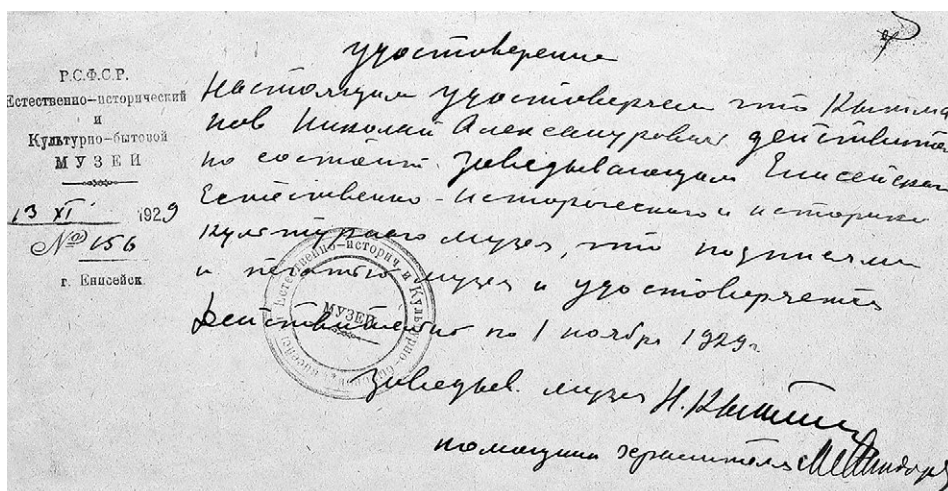 Р.С.Ф.С.Р.
Естественно-исторический
и
Культурно-бытовой
МУЗЕЙ
13 XI 1929
№ 156
г. Енисейск
удостоверение
Настоящим удостоверяем что Кытма
нов Николай Александрович действител
но состоит заведывающим Енисейского
Естественно-исторического и историко
культурного музея, что подписями
и печатью музея и удостоверяется
Действительно по 1 ноября 1929 г.
Заведыв. музея Н. Кытман
помощник хранителя
Естественно-историч. и Культурно-бытовой
МУЗЕЙ